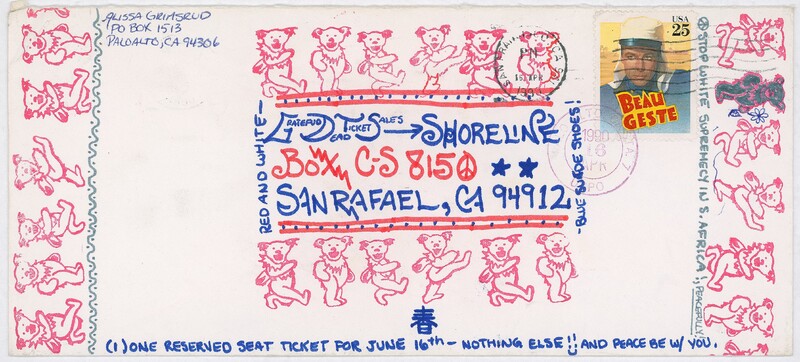 ALISSA GRIMSRUD
PO BOX 1513
PALO ALTO, CA 94306
PM
APR
USA
25
BEAU
GESTE
1990
18
APR
PO
RED AND WHITE—
GRATEFUL DEAD TICKET SALES → SHORELINE
BOX C-S 8150
SAN RAFAEL, CA 94912
—BLUE SUADE SHOES!
STOP WHITE SUPREMECY IN S. AFRICA!, PEACEFULLY
春
(1) ONE RESERVED SEAT TICKET FOR JUNE 16th — NOTHING ELSE!! AND PEACE BE W/ YOU.